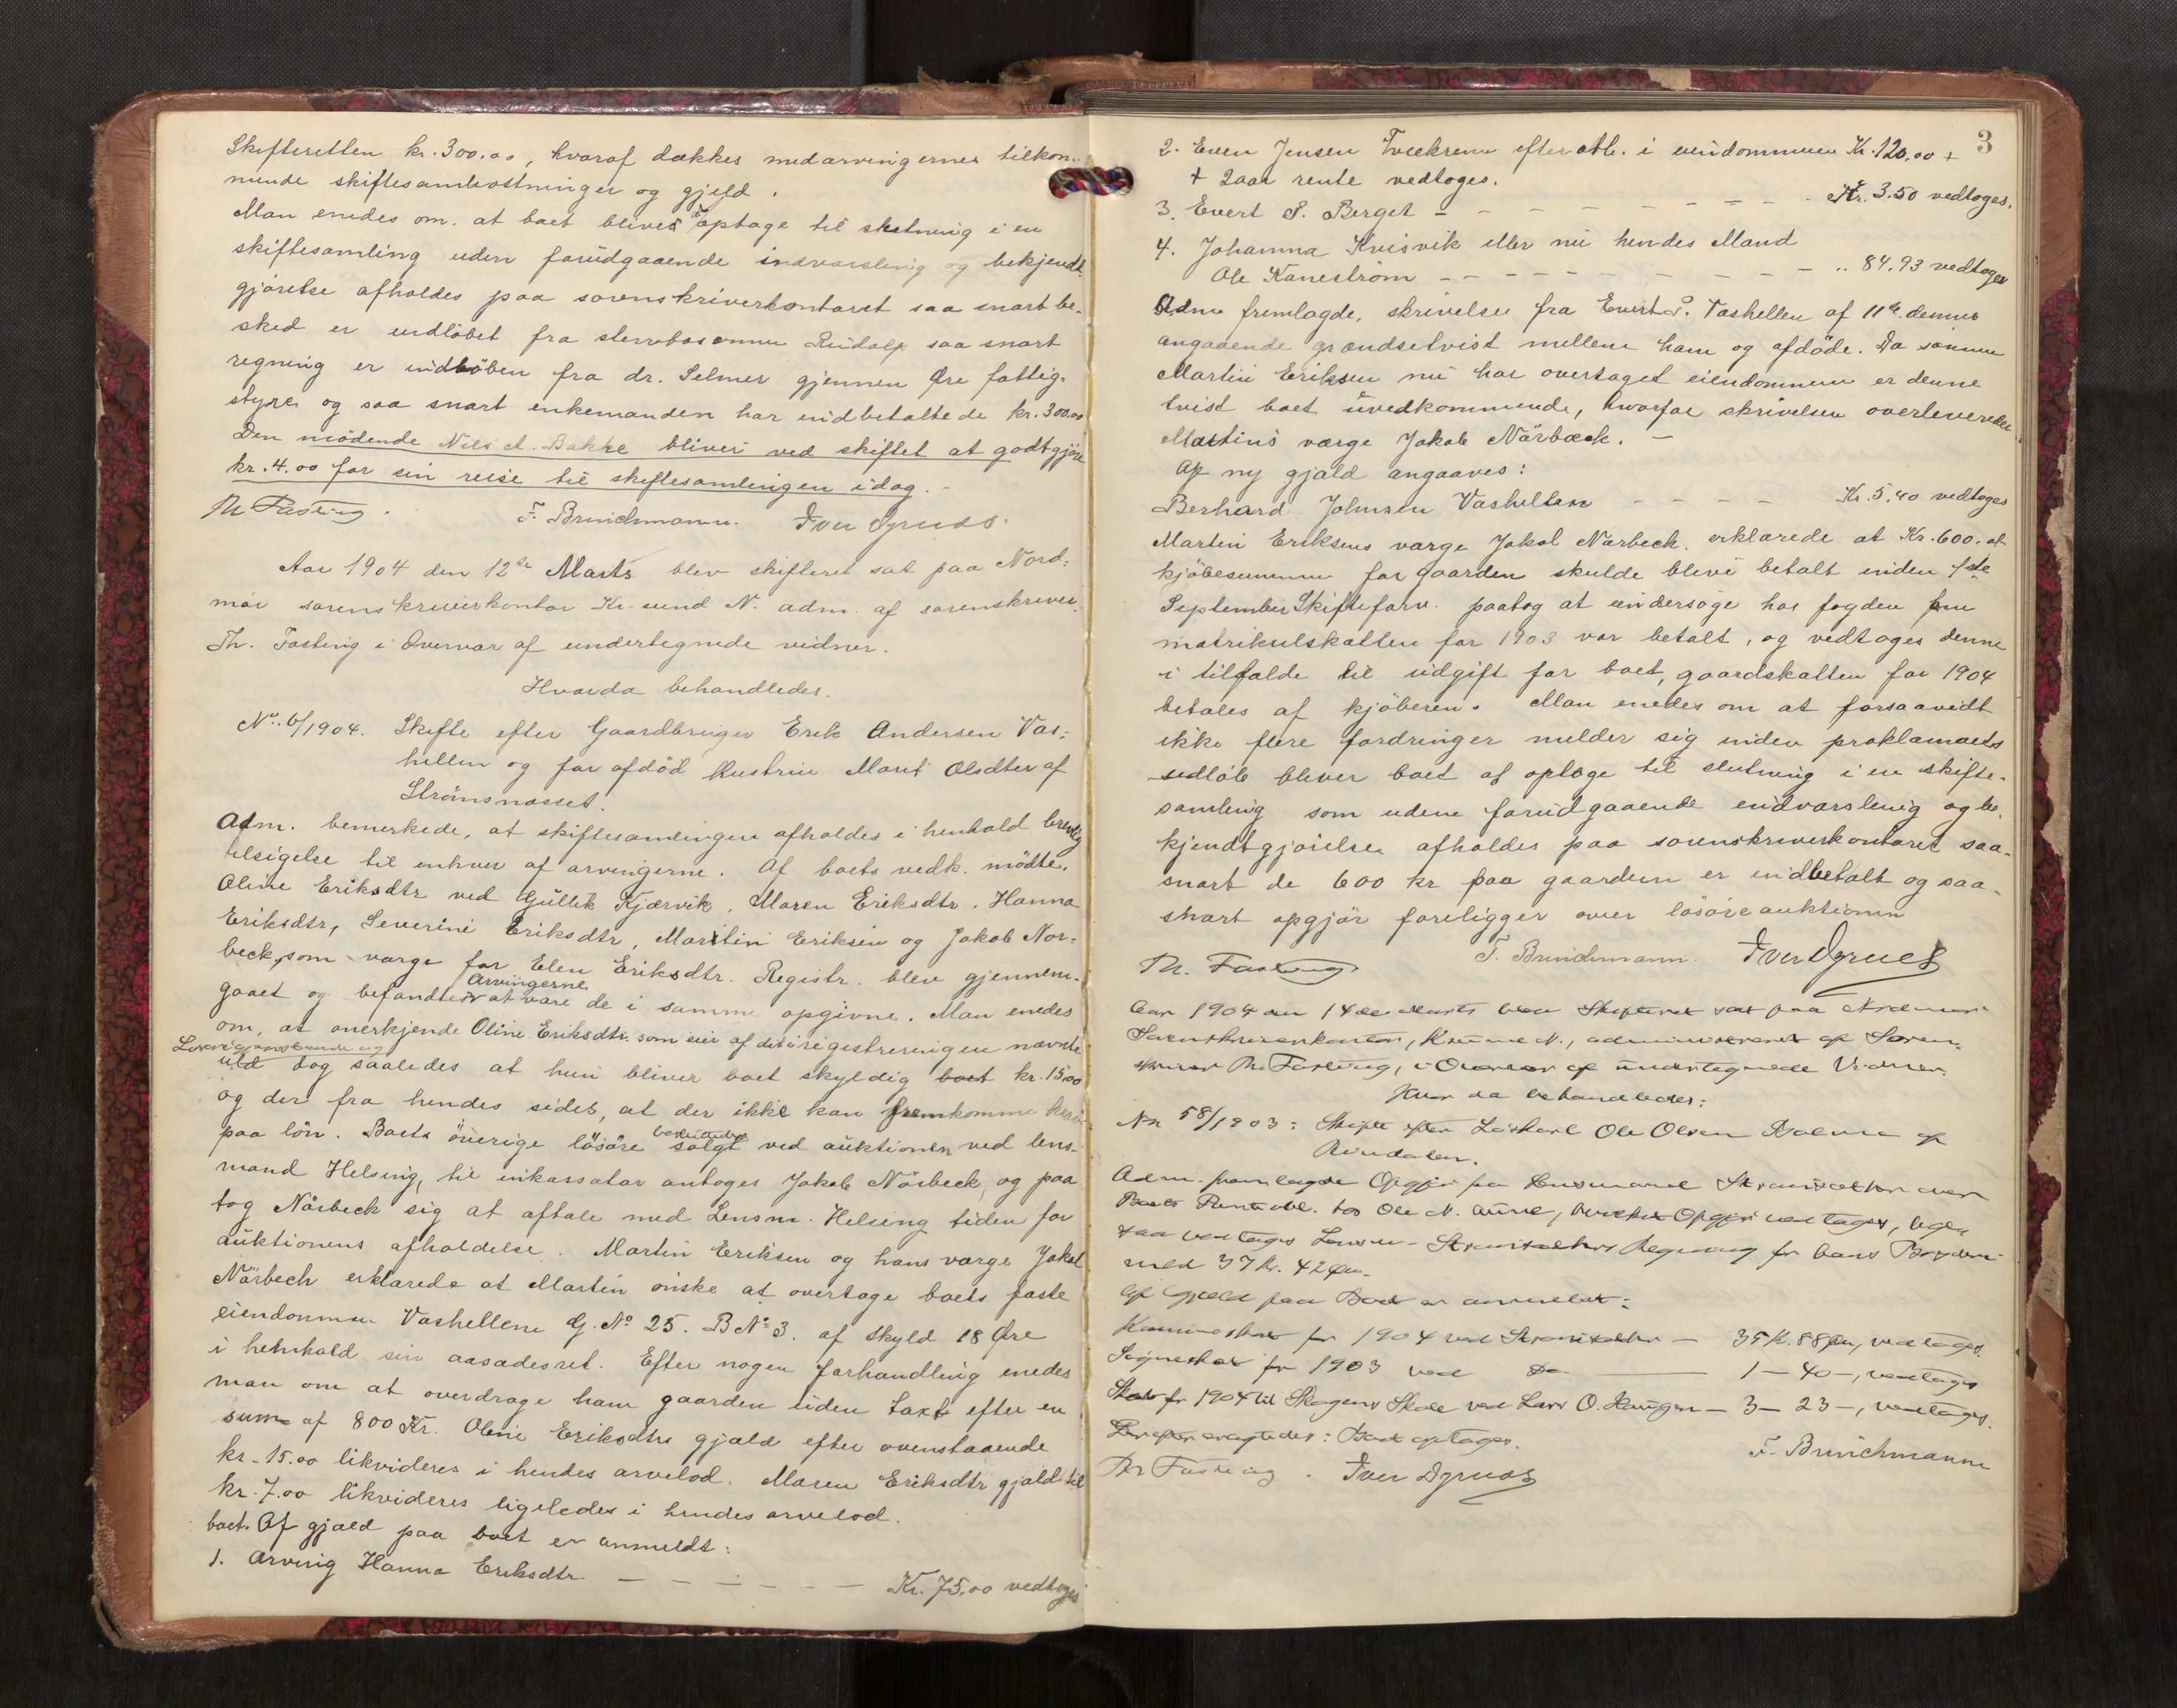 Skifteretten kr. 300.00, hvoraf dækkes medarvingernes tilkom-
mende skiftesomkostninger og gjeld.
Man enedes om. at boet bliver at optage til slutning i en
skiftesamling uden forudgaaende indvarsling og bekjendt-
gjørelse afholdes paa sorenskriverkontoret saa snart be-
sked er indløbet fra stervbosønnen Rudolf saa snart
regning er indløben fra dr. Selmer gjennem Øre fattig-
styre og saa snart enkemanden har indbetalte de kr. 300.00
Den mødende Nils A. Bakke bliver ved skiftet at godtgjøre
kr. 4.00 for sin reise til skiftesamlingen idag. -
Th Fasting. F. Brinchmann. Iver Dyrnes.
Aar 1904 den 12te Marts blev skifteret sat paa Nord-
mør sorenskriverkontor Kr.sund N. adm. af sorenskriver
Th. Fasting i Overvær af undertegnede vidner.
Hvorda behandledes.
No. 6/1904. Skifte efter Gaardbruger Erik Andersen Vas-
hellen og før afdød Hustru Marit Olsdtter af
Strømsnæsset.
Adm. bemerkede, at skiftesamlingen afholdes i henhold brevlig
tilsigelse til enhver af arvingerne. Af boets vedk. mødte.
Oline Eriksdtr ved Gullik Kjærvik, Maren Eriksdtr. Hanna
Eriksdtr, Severine Eriksdtr, Martin Eriksen og Jakob Nør-
beck, som værge for Elen Eriksdtr. Registr. blev gjennem-
gaaet og befandtes Arvingerne at være de i samme opgivne. Man enedes
om, at anerkjende Oline Eriksdtr. som eier af de i registreringen nævnte
Løsøregjenstande og
uld dog saaledes at hun bliver boet skyldig boet kr. 15.00
og der fra hendes sides, at der ikke kan fremkomme krav
paa løn. Boets øvrige løsøre besluttedes solgt ved auktionen ved lens-
mand Helsing, til inkassator antoges Jakob Nörbeck, og paa-
tog Nörbeck sig at aftale med Lensm. Helsing tiden for
auktionens afholdelse. Martin Eriksen og hans værge Jakob
Nörbech erklærede at Martin ønske at overtage boets faste
eiendommen Vashellen G. No 25. B No 3. af skyld 18 Øre
i henhold sin aasædesret. Efter nogen forhandling enedes
man om at overdrage ham gaarden uden taxt efter en
sum af 800 Kr. Oline Eriksdtrs gjæld efter ovenstaaende
kr. 15.00 likvideres i hendes arvelod. Maren Eriksdtr gjæld til
kr. 7.00 likvideres ligeledes i hendes arvelod.
boet. Af gjæld paa boet er anmeldt:
1. Arving Hanna Eriksdtr. - - - - - - Kr. 75.00 vedtoges
3
2. Even Jensen efter obl. i eiendommen Kr. 120,00 +
+ 2 aar rente vedtoges.
3. Evert P. Berget - - - - - - - - Kr. 3.50 vedtoges.
4. Johanna Kvisvik eller nu hendes Mand
Ole Kanestrøm - - - - - - - - - .. 84.93 vedtoges
Adm fremlagde, skrivelse fra Evert P. Vashellen af 11te dennes
angaaende grændsetvist mellem ham og afdøde. Da sønnen
Martin Eriksen nu har overtaget eiendommen er denne
tvist boet uvedkommende, hvorfor skrivelsen overleveredes
Martins værge Jakob Nörbæck. -
Af ny gjæld angaaves:
Berhard Johnsen Vashellen - - - - Kr. 5.40 vedtoges
Martin Eriksens værge Jakob Nørbeck. erklærede at Kr. 600. af
kjøbesummen for gaarden skulde blive betalt inden 1ste
September Skifteforv. paatog at undersøge hos fogden om
matrikulskatten for 1903 var betalt, og vedtoges denne
i tilfælde til udgift for boet, gaardskatten for 1904
betales af kjøberen. Man enedes om at forsaavidt
ikke flere fordringer melder sig inden proklamaets
udløb bliver boet at optage til slutning i en skifte-
samling som uden forudgaaende indvarsling og be-
kjendtgjørelse afholdes paa sorenskriverkontoret saa-
snart de 600 kr paa gaarden er indbetalt og saa-
snart opgjør foreligger over løsøreauktionen
Th. Fasting F. Brinchmann. Iver Dyrnes
Aar 1904 den 14de Marts blev Skifteret sat paa Nordmør
Sorenskriverkontor, Kr.sund N., administreret af Soren-
skriver Th. Fasting, i Overvær af undertegnede Vidner.
Hvor da behandledes:
No 58/1903: Skifte efter Løskarl Ole Olsen af
Rindalen.
Adm. fremlagde Opgjør fra Lensmand over
Boets obl. hos Ole N. Aune, hvilket Opgjør vedtages, lige-
saa vedtages Lensm. Regning for hans
med 37 Kr. 42 Øre.
Af Gjæld paa Boet er anmeldt:
for 1904 ved — 35 Kr. 88 Øre, vedtages.
Sogneskat for 1903 ved Do — 1 — 40 —, vedtages
Skat for 1904 til Skogens Skole ved Lars O. Haugen — 3 — 23 —, vedtages.
: Boet optages.
Th Fasting. Iver Dyrnes F. Brinchmann